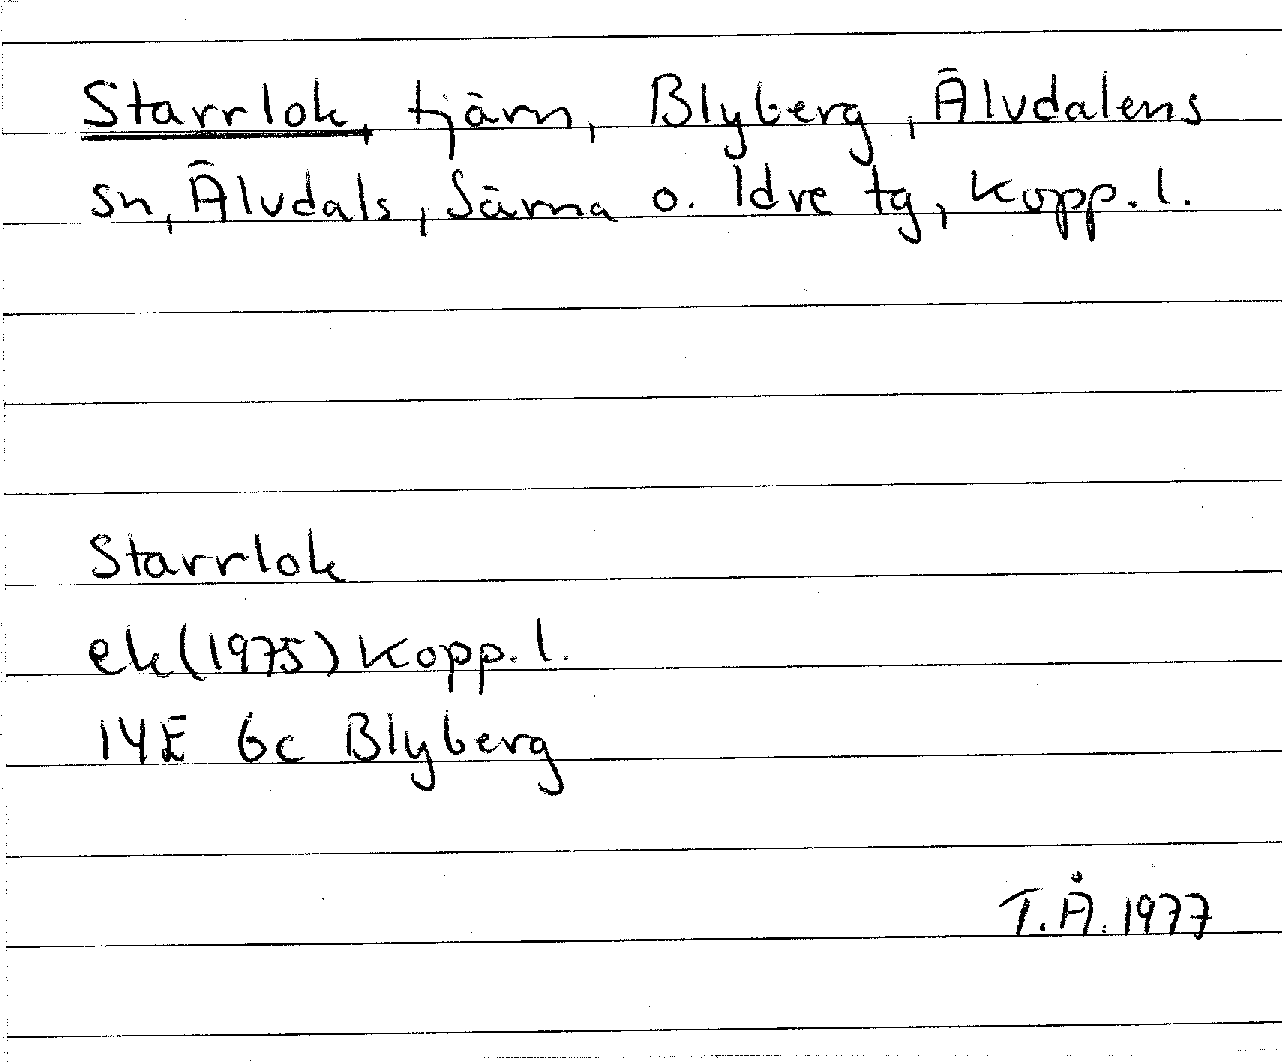 Starrlok, tjärn, Blyberg, Älvdalens
sn, Älvdals, Särna o. Idre tg, Kopp. l.
Starrlok
ek (1975) Kopp. l.
14E 6c Blyberg
T.Å. 1977